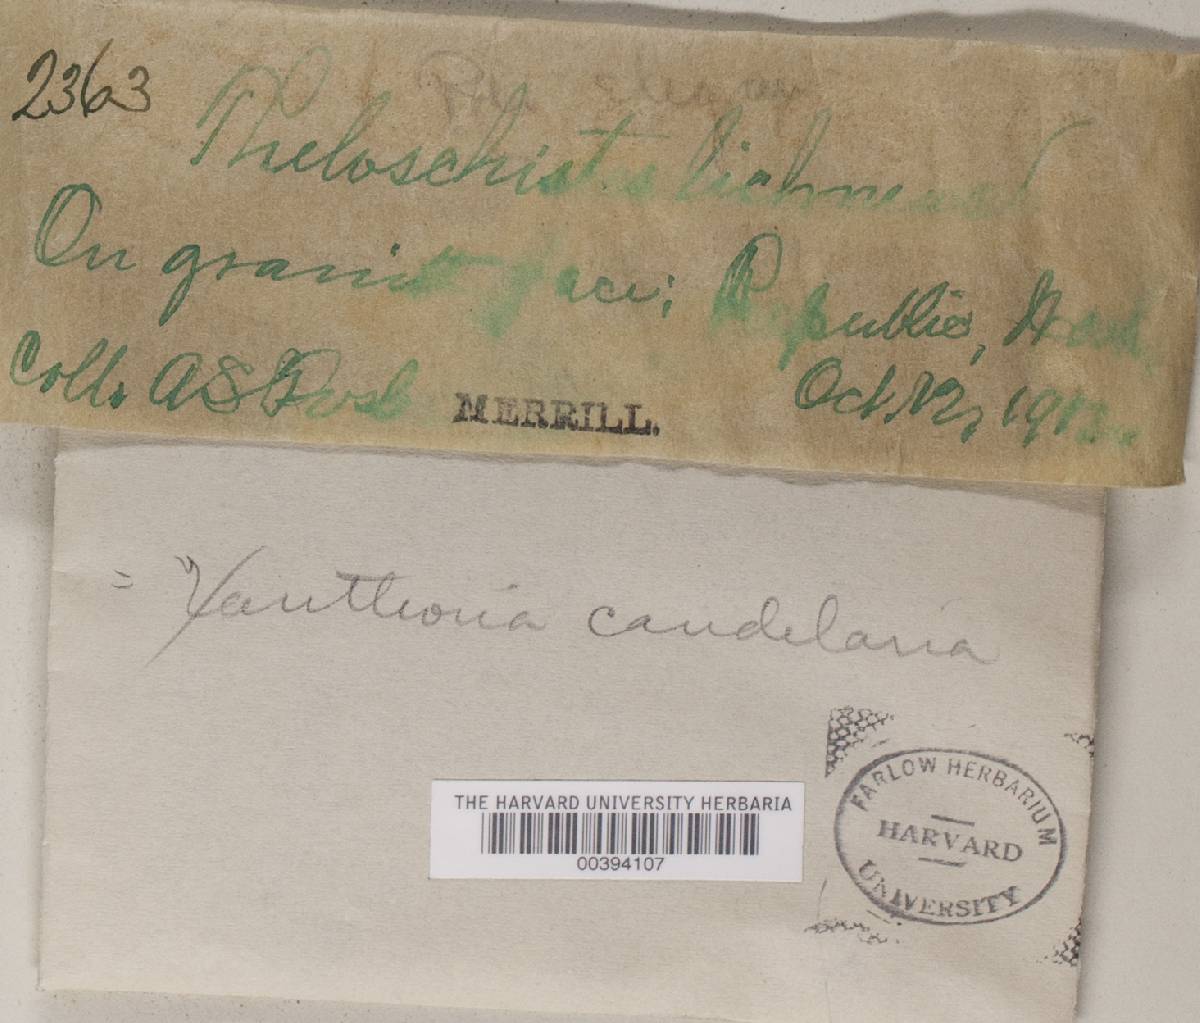 2363
Theloschistes lichneus
On granit face; Republic, Wash.
Coll. A S Fost
MERRILL.
Oct. 12, 1912.
= Xanthoria candelaria
THE HARVARD UNIVERSITY HERBARIA
00394107
FARLOW HERBARIUM
HARVARD
UNIVERSITY